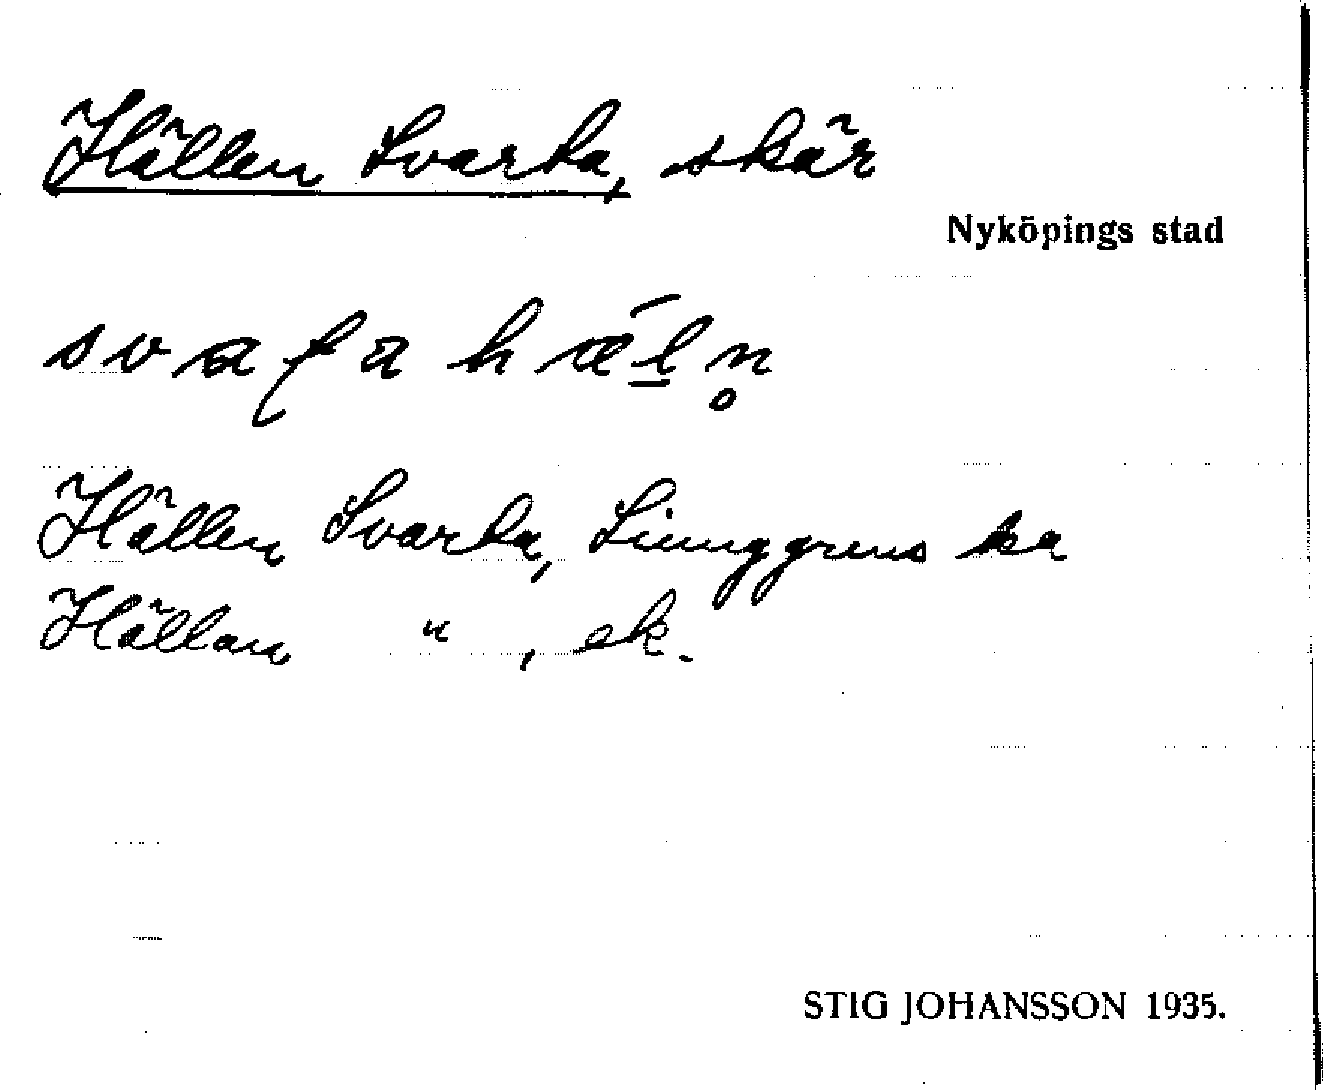 Hällen Svarta, skär
Nyköpings stad
Hällen Svarta, Ljunggrens ka
Hällan " , ek.
STIG JOHANSSON 1935.